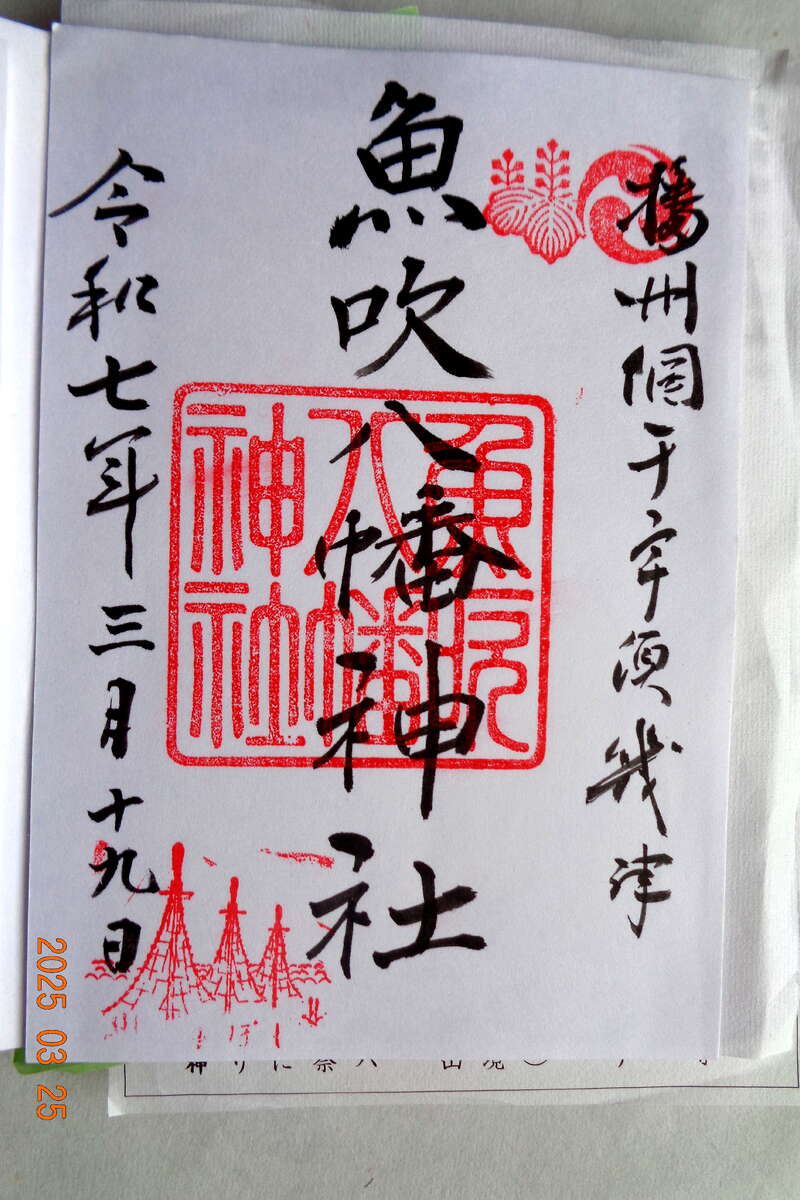 播州網干宇須幾津
魚吹八幡神社
魚吹
八幡
神社
令和七年三月十九日
2025 03 25